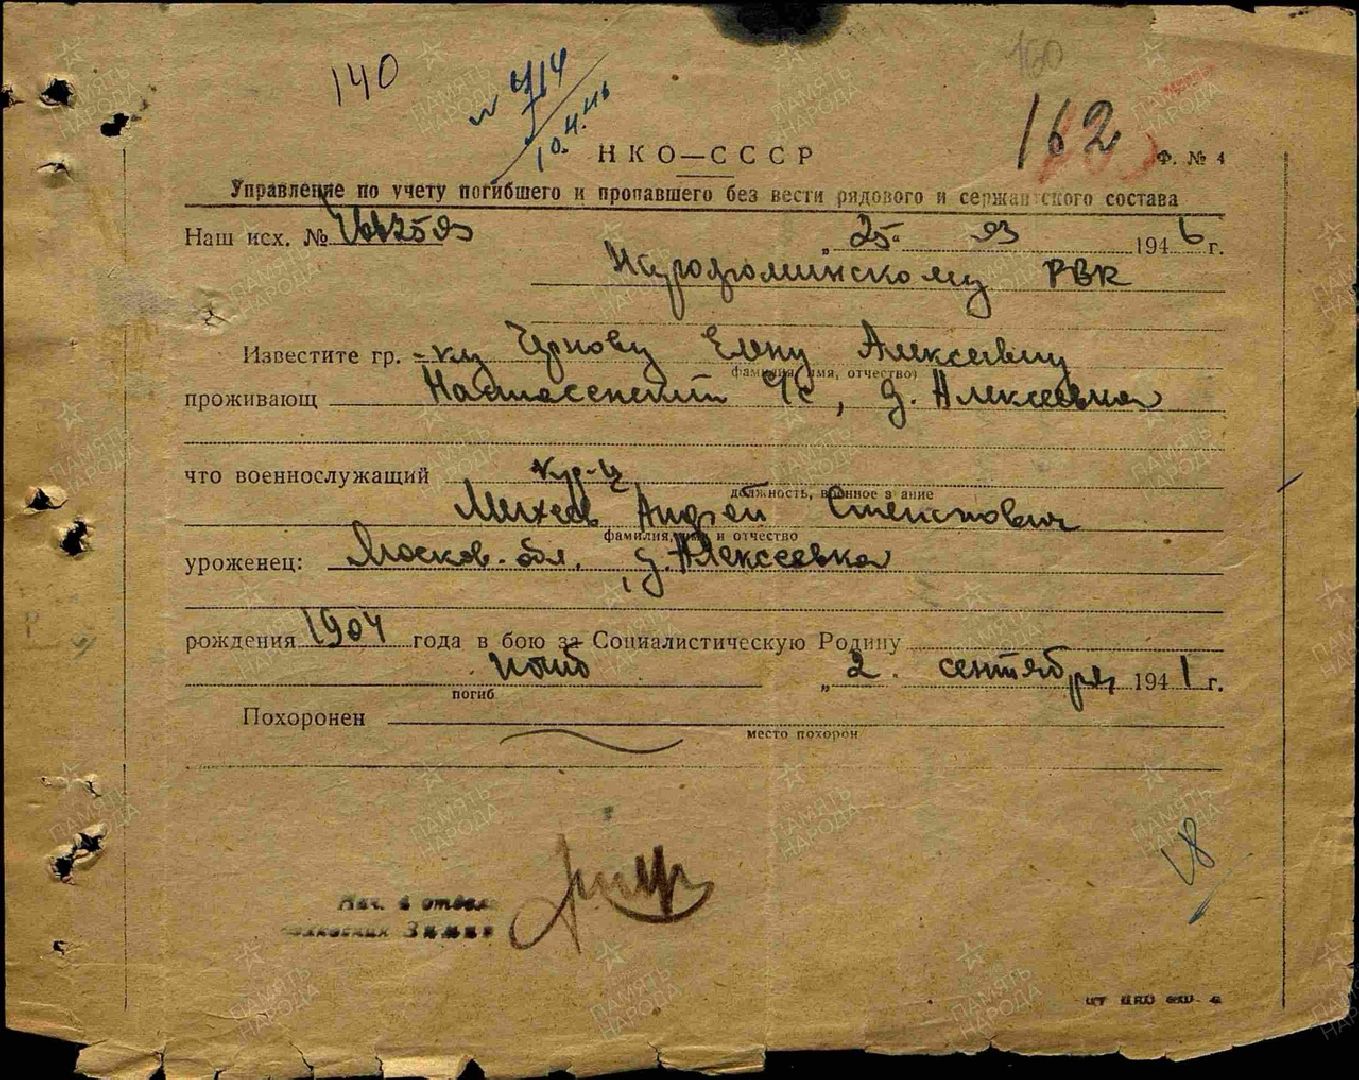 140
№ 4714
10.4.46
160
162
НКО—СССР
Ф. № 4
Управление по учету погибшего и пропавшего без вести рядового и сержантского состава
Наш исх. №
„25“ 03 1946 г.
РВК
Известите гр.-ку Чернову Елену Алексеевну
фамилия, имя, отчество)
проживающ с/с, д. Алексеевка
что военнослужащий кр-ц
должность, военное звание
Михеев Андрей Степанович
фамилия, имя и отчество
уроженец: Москов. обл., д. Алексеевка
рождения 1904 года в бою за Социалистическую Родину
погиб „2. сентября 1941 г.
погиб
Похоронен
место похорон
18
Нач. 4 отдел
Зимин